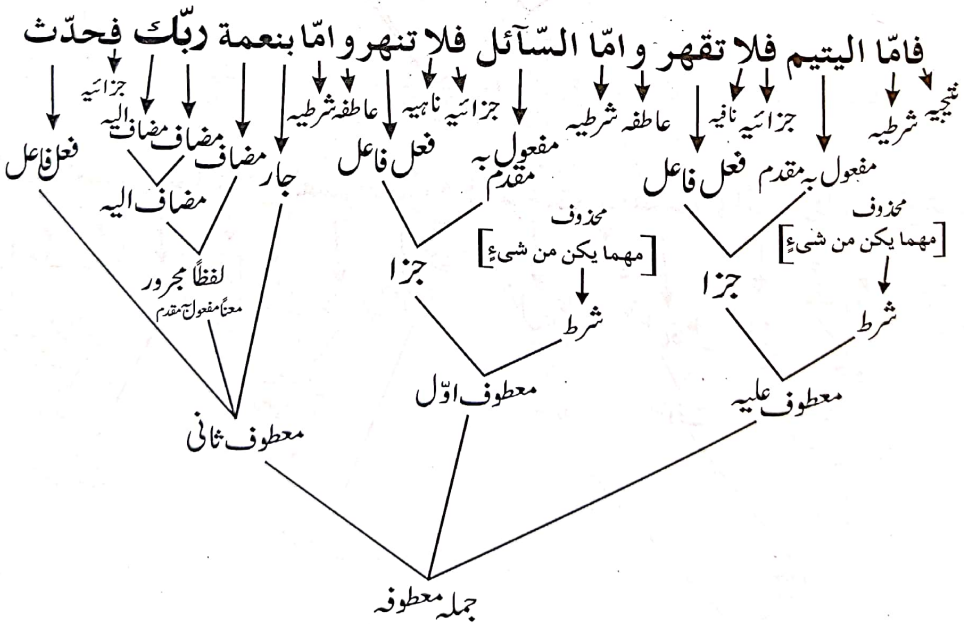 فامّا اليتيم فلا تقهر و امّا السّآئل فلا تنهر و امّا بنعمة ربّك فحدّث
نتیجیہ شرطیہ مفعول بہ مقدم جزائیہ نافیہ فعل فاعل عاطفہ شرطیہ مفعول بہ مقدم جزائیہ ناہیہ فعل فاعل عاطفہ شرطیہ جار مضاف مضاف مضاف الیہ جزائیہ فعل فاعل
محذوف
[مهما يكن من شیءٍ]
محذوف
[مهما يكن من شیءٍ]
مضاف الیہ
شرط
جزا
شرط
جزا
لفظًا مجرور
معناً مفعول بہ مقدم
معطوف علیہ
معطوف اوّل
معطوف ثانی
جملہ معطوفہ